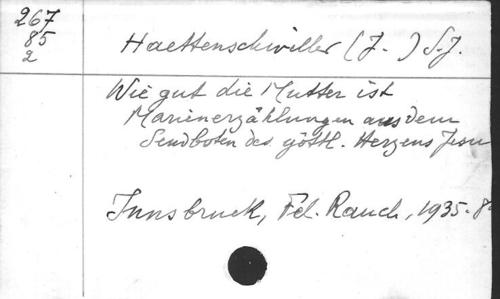 267
85
2
Haettenschwiller (J. - ) S.J.
Wie gut die Mutter ist
Marienerzählungen aus dem
Sendboten des göttl. Herzens Jesu
Innsbruck, Fel. Rauch, 1935. 8